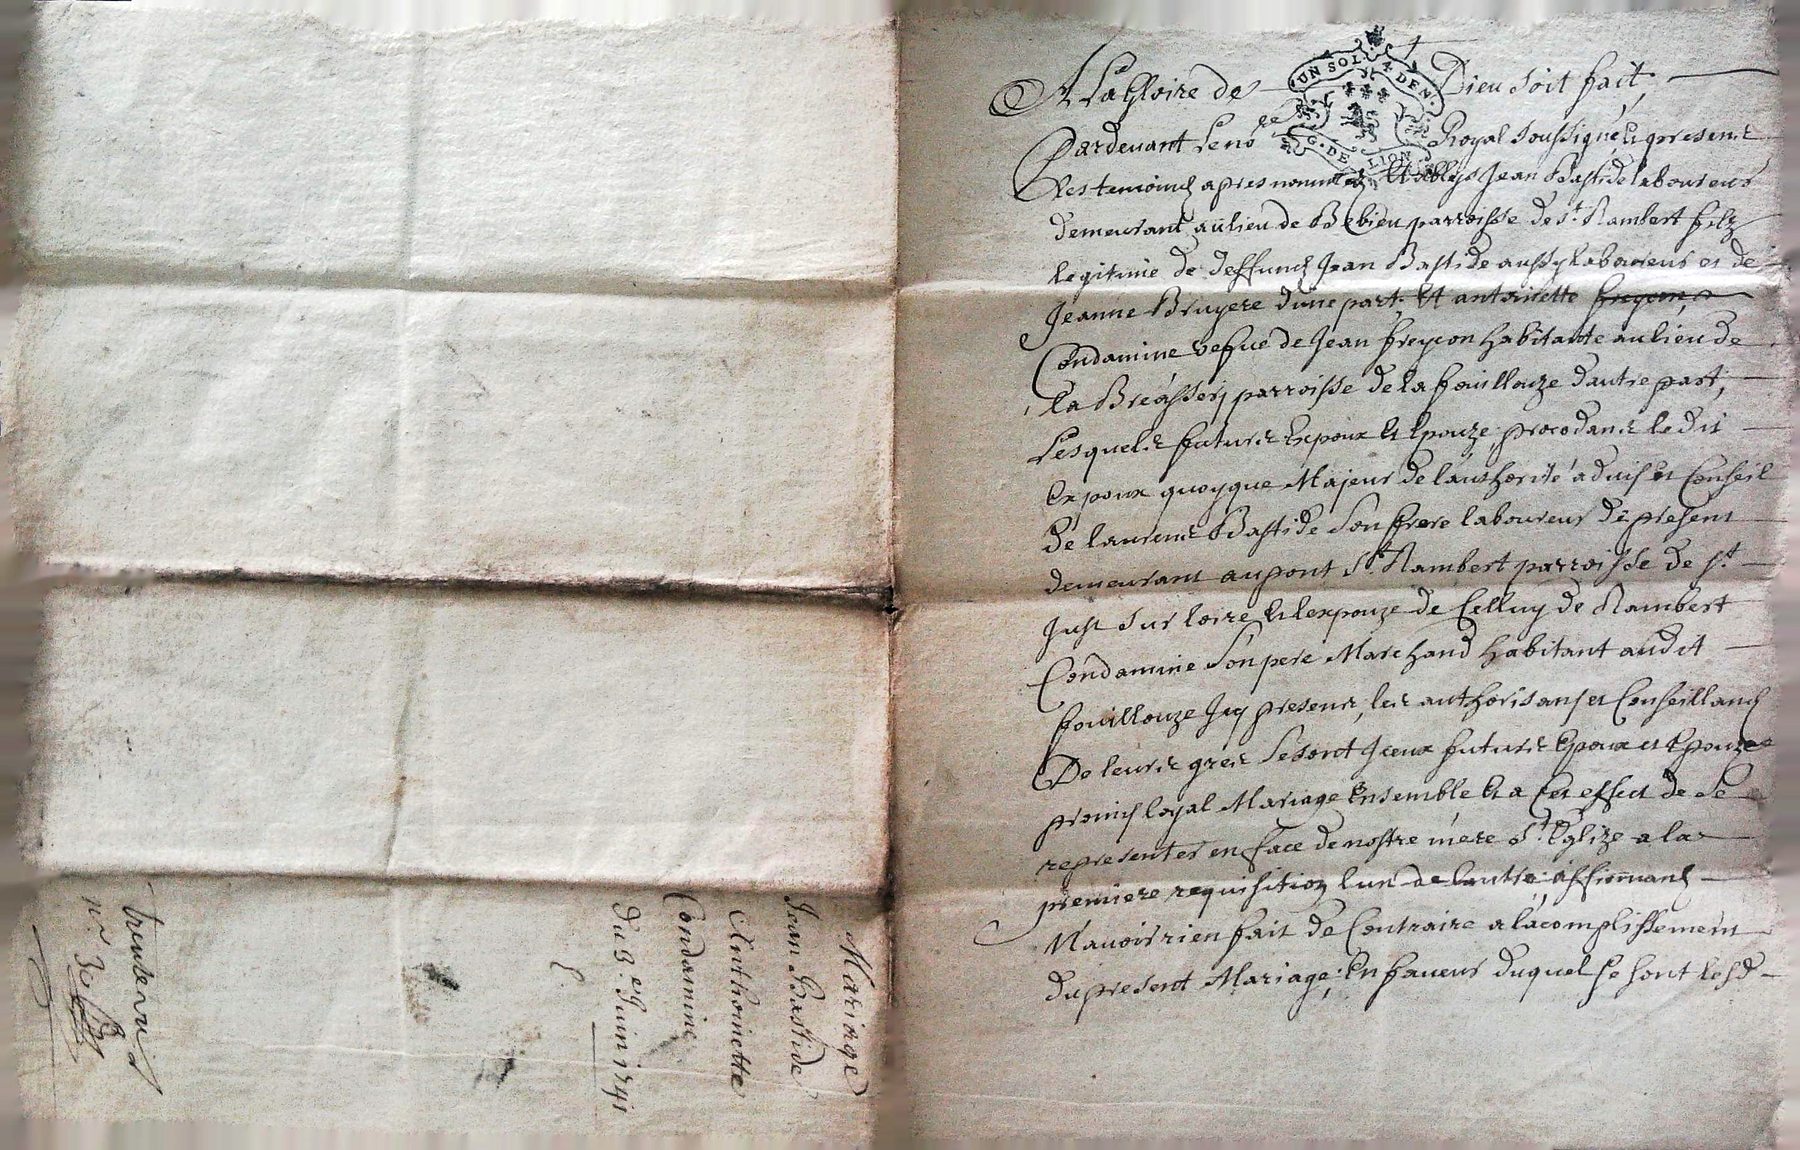 Mariage
Jean Bastide
Anthoinette
Condamine
du 3e Juin 1741
n.
UN SOL. 4 DEN.
G. DE LION
A La Gloire de Dieu soit fait,
Pardevant le no.re Royal soussigné et presents
les temoins apres nommez Establys Jean Bastide laboureur
demeurant au lieu de Bebieu parroisse de St. Rambert filz
legitime de deffunct Jean Bastide aussy laboureur et de
Jeanne Bruyere d'une part, Et antoinette freycon,
Condamine vefue de Jean freycon habitante au lieu de
la Breassery parroisse de la fouillouze d'autre part,
Lesquels futurs Expoux Et Epouze procedants le dit
Expoux quoyque Majeur de l'authorité aduis et Conseil
de laurent Bastide son frere laboureur de present
demeurant au pont St. Rambert parroisse de St.
Just sur loire Et lexpouze de Celluy de Rambert
Condamine Son pere Marchand habitant audit
fouillouze Icy present, les authorisans et Conseillands
De leurs grez Se sont Iceux futurs Epoux et Epouze
promis loyal Mariage Ensemble Et a Cet effect de Se
representer en face de nostre mere Ste. Eglize a la
premiere requisition lun de lautre, affirmans
N'auoir rien fait de Contraire a lacomplissement
du present Mariage, En faueur duquel se sont lesd